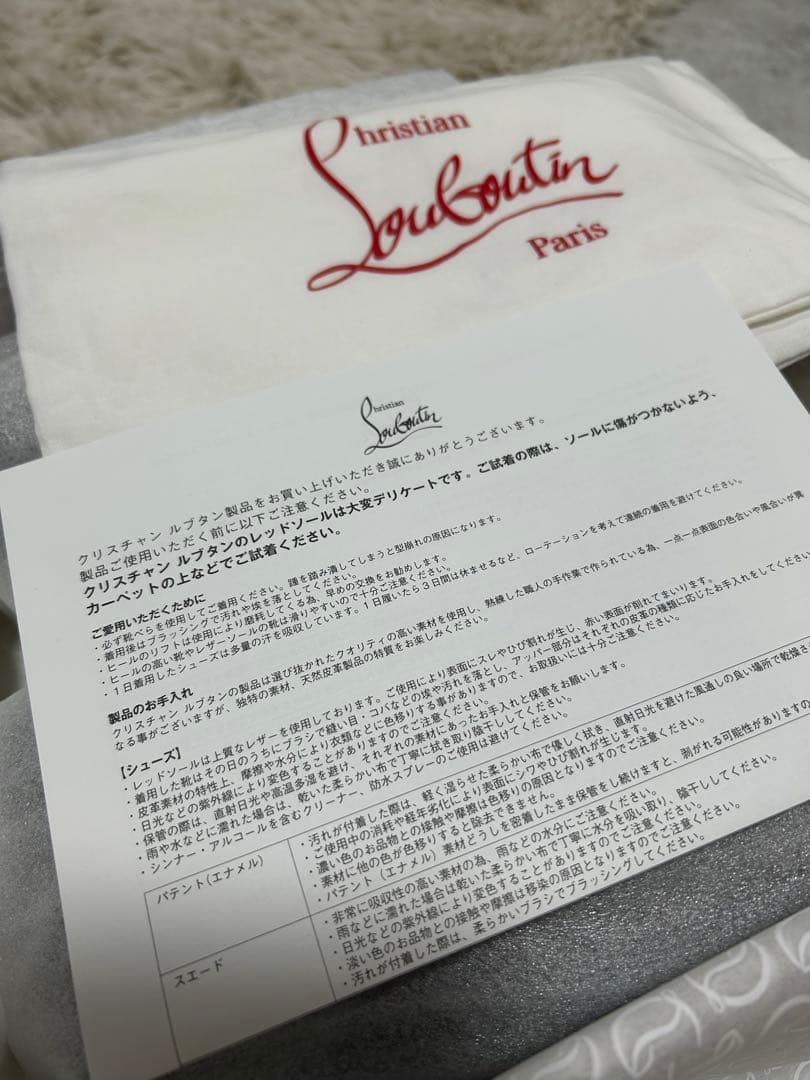 Christian
Louboutin
Paris
Christian
Louboutin
クリスチャン ルブタン製品をお買い上げいただき誠にありがとうございます。
製品ご使用いただく前に以下ご注意ください。
クリスチャン ルブタンのレッドソールは大変デリケートです。ご試着の際は、ソールに傷がつかないよう、
カーペットの上などでご試着ください。
ご愛用いただくために
・必ず靴べらを使用してご着用ください。踵を踏み潰してしまうと型崩れの原因になります。
・着用後はブラッシングで汚れや埃を落としてください。
・ヒールのリフトは使用により磨耗してくる為、早めの交換をお勧めします。
・ヒールの高い靴やレザーソールの靴は滑りやすいので十分ご注意ください。
・1日着用したシューズは多量の汗を吸収しています。1日履いたら3日間は休ませるなど、ローテーションを考えて連続の着用を避けてください。
製品のお手入れ
クリスチャン ルブタンの製品は選び抜かれたクオリティの高い素材を使用し、熟練した職人の手作業で作られている為、一点一点表面の色合いや風合いが異
なる事がございますが、独特の素材、天然皮革製品の特質をお楽しみください。
【シューズ】
・レッドソールは上質なレザーを使用しております。ご使用により表面にスレやひび割れが生じ、赤い表面が削れてまいります。
・着用した靴はその日のうちにブラシで縫い目・コバなどの埃や汚れを落とし、アッパー部分はそれぞれの皮革の種類に応じたお手入れをしてください
・皮革素材の特性上、摩擦や水分により衣類などに色移りする事がありますので、お取扱いには十分ご注意ください。
・日光などの紫外線により変色することがありますのでご注意ください。
・保管の際は、直射日光や高温多湿を避け、それぞれの素材にあったお手入れと保管をお願いします。
・雨や水などに濡れた場合は、乾いた柔らかい布で丁寧に拭き取り陰干ししてください。
・シンナー・アルコールを含むクリーナー、防水スプレーのご使用は避けてください。
パテント(エナメル)
・汚れが付着した際は、軽く湿らせた柔らかい布で優しく拭き、直射日光を避けた風通しの良い場所で乾燥さ
・ご使用中の消耗や経年劣化により表面にシワやひび割れが生じます。
・濃い色のお品物との接触や摩擦は色移りの原因となりますのでご注意ください。
・素材に他の色が色移りすると除去できません。
・パテント(エナメル)素材どうしを密着したまま保管をし続けますと、剥がれる可能性がありますの
スエード
・非常に吸収性の高い素材の為、雨などの水分にご注意ください。
・雨などに濡れた場合は乾いた柔らかい布で丁寧に水分を吸い取り、陰干ししてください。
・日光などの紫外線により変色することがありますのでご注意ください。
・淡い色のお品物との接触や摩擦は移染の原因となりますのでご注意ください。
・汚れが付着した際は、柔らかいブラシでブラッシングしてください。